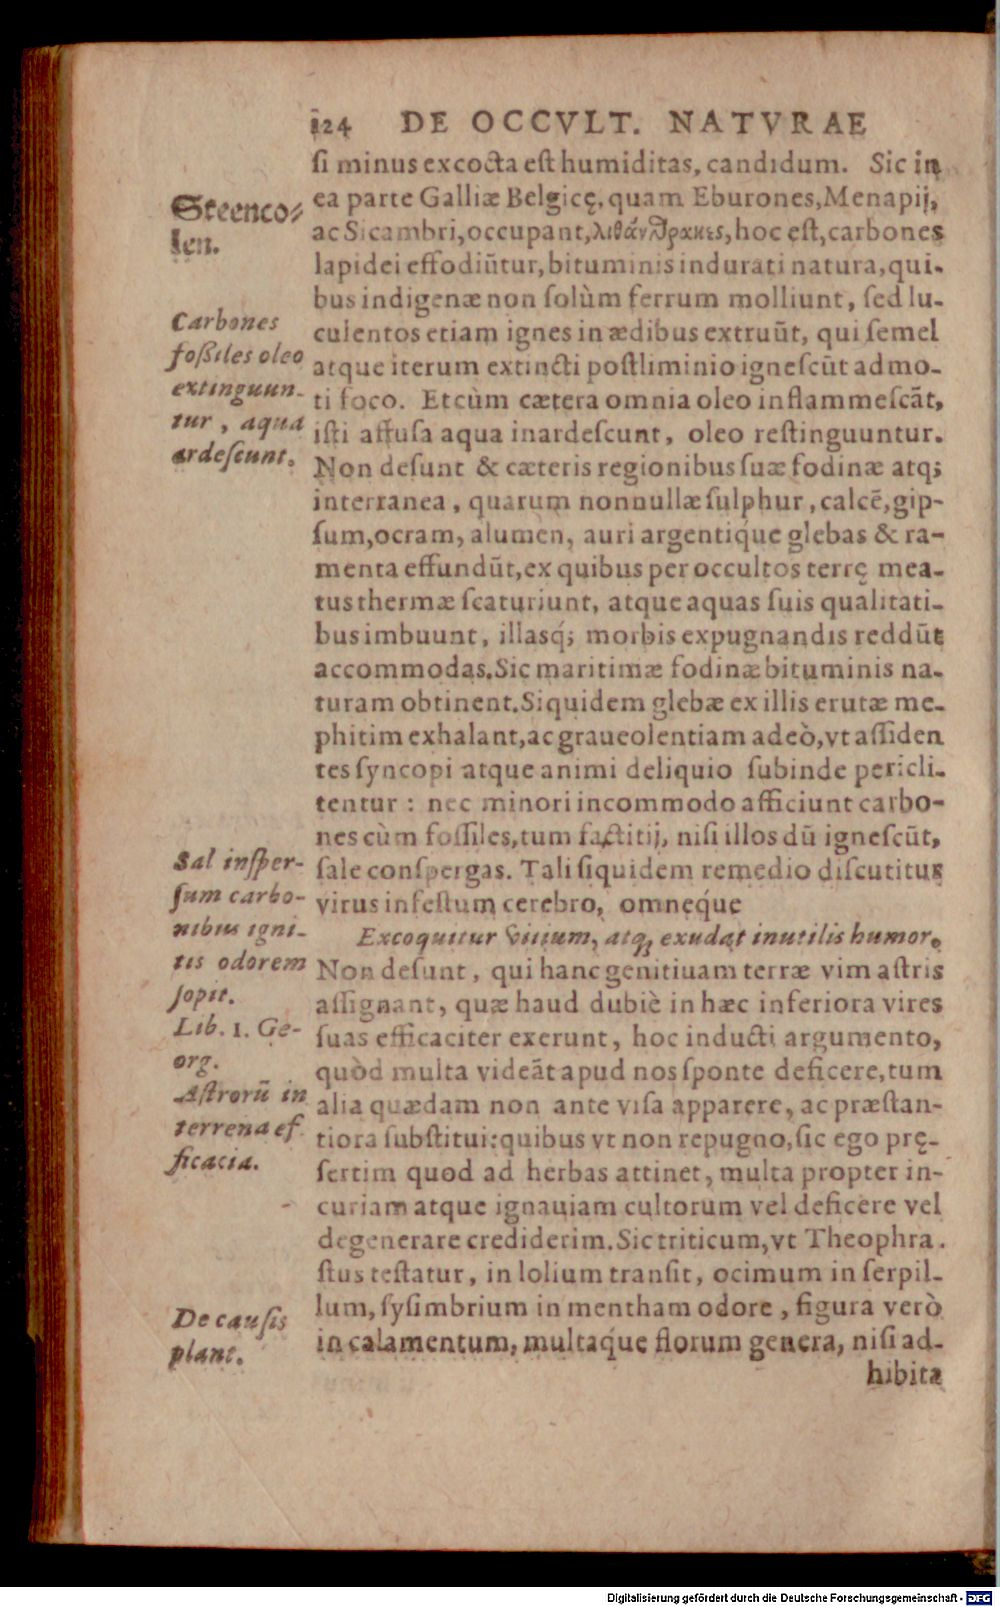 124 DE OCCVLT. NATVRAE
ſi minus excocta eſt humiditas, candidum. Sic in
ea parte Galliæ Belgicę, quam Eburones, Menapij,
ac Sicambri, occupant, λιθάνθρακες, hoc eſt, carbones
lapidei effodiũtur, bituminis indurati natura, qui-
bus indigenæ non ſolùm ferrum molliunt, ſed lu-
culentos etiam ignes in ædibus extruũt, qui ſemel
atque iterum extincti poſtliminio igneſcũt admo-
ti foco. Et cùm cætera omnia oleo inflammeſcãt,
iſti affuſa aqua inardeſcunt, oleo reſtinguuntur.
Non deſunt & cæteris regionibus ſuæ fodinæ atq;
interranea, quarum nonnullæ ſulphur, calcẽ, gip-
ſum, ocram, alumen, auri argentiq́ue glebas & ra-
menta effundũt, ex quibus per occultos terrę mea-
tus thermæ ſcaturiunt, atque aquas ſuis qualitati-
bus imbuunt, illasq́; morbis expugnandis reddũt
accommodas. Sic maritimæ fodinæ bituminis na-
turam obtinent. Siquidem glebæ ex illis erutæ me-
phitim exhalant, ac graueolentiam adeò, vt aſſiden
tes ſyncopi atque animi deliquio ſubinde pericli-
tentur : nec minori incommodo afficiunt carbo-
nes cùm foſſiles, tum factitij, niſi illos dũ igneſcũt,
ſale conſpergas. Tali ſiquidem remedio diſcutitur
virus infeſtum cerebro, omneq́ue
Excoquitur vitium, atq; exudat inutilis humor.
Non deſunt, qui hanc genitiuam terræ vim aſtris
aſſignant, quæ haud dubiè in hæc inferiora vires
ſuas efficaciter exerunt, hoc inducti argumento,
quòd multa videãt apud nos ſponte deficere, tum
alia quædam non ante viſa apparere, ac præſtan-
tiora ſubſtitui: quibus vt non repugno, ſic ego prę-
ſertim quod ad herbas attinet, multa propter in-
curiam atque ignauiam cultorum vel deficere vel
degenerare crediderim. Sic triticum, vt Theophra-
ſtus teſtatur, in lolium tranſit, ocimum in ſerpil-
lum, ſyſimbrium in mentham odore, figura verò
in calamentum, multaq́ue florum genera, niſi ad-
hibita
Steenco-
len.
Carbones
foſsiles oleo
extinguun-
tur, aqua
ardeſcunt.
Sal inſper-
ſum carbo-
nibus igni-
tis odorem
ſopit.
Lib. 1. Ge-
org.
Aſtrorũ in
terrena ef-
ficacia.
De cauſis
plant.
Digitalisierung gefördert durch die Deutsche Forschungsgemeinschaft - DFG